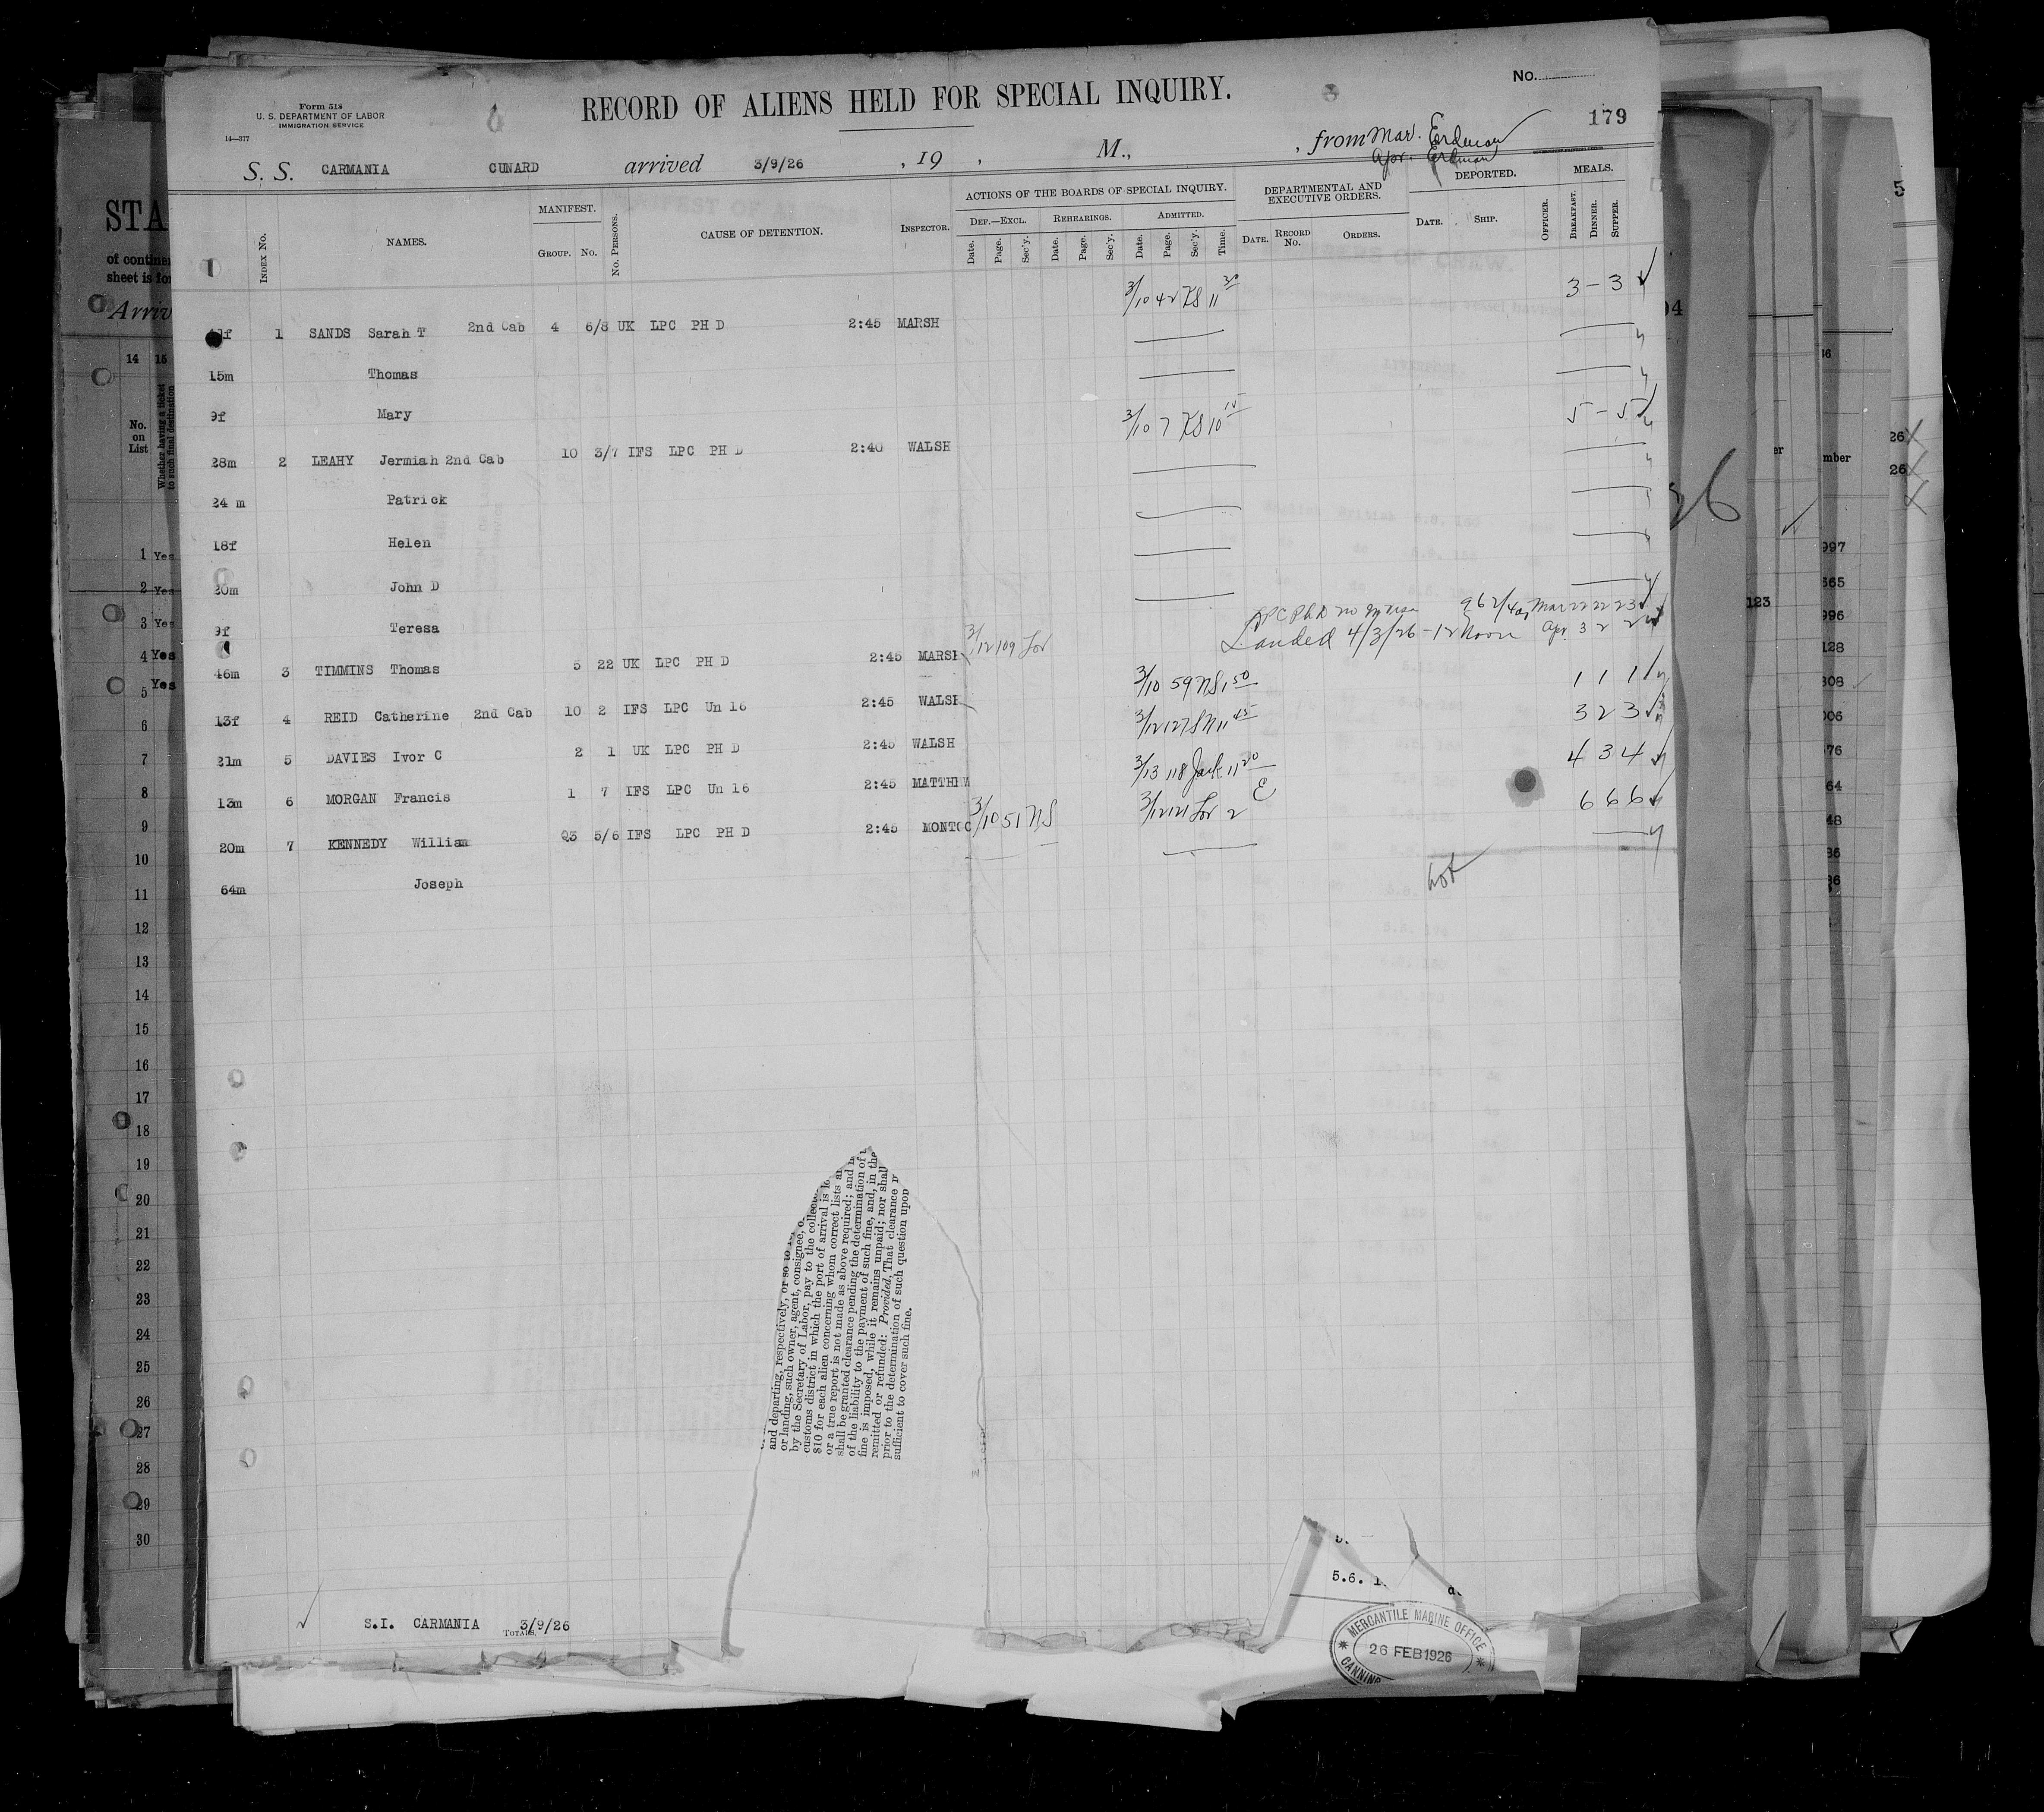 No.
Form 518
U. S. DEPARTMENT OF LABOR
IMMIGRATION SERVICE
14—377
RECORD OF ALIENS HELD FOR SPECIAL INQUIRY.
179
S. S. CARMANIA CUNARD arrived 3/9/26 , 19 , M., , from Mar. Erdman
Apr. Erdman
INDEX No. NAMES. MANIFEST. GROUP. No. No. PERSONS. CAUSE OF DETENTION. INSPECTOR. ACTIONS OF THE BOARDS OF SPECIAL INQUIRY. DEPARTMENTAL AND EXECUTIVE ORDERS. DEPORTED. MEALS.
DEF.—EXCL. REHEARINGS. ADMITTED.
Date. Page. Sec'y. Date. Page. Sec'y. Date. Page. Sec'y. Time. DATE. RECORD No. ORDERS. DATE. SHIP. OFFICER. BREAKFAST. DINNER. SUPPER.
3/10 42 KS 11 30 3 – 3
1f 1 SANDS Sarah T 2nd Cab 4 6/8 UK LPC PH D 2:45 MARSH
15m Thomas
9f Mary
3/10 7 KS 10 15 5 – 5
28m 2 LEAHY Jermiah 2nd Cab 10 3/7 IFS LPC PH D 2:40 WALSH
24 m Patrick
18f Helen
20m John D
LPC PhD no 962/40 Mar 22 22 23
9f Teresa
3/12 109 Lor Landed 4/3/26 – 12 Noon Apr. 3 2 2
46m 3 TIMMINS Thomas 5 22 UK LPC PH D 2:45 MARSH
3/10 59 NS 1 50 1 1 1
13f 4 REID Catherine 2nd Cab 10 2 IFS LPC Un 16 2:45 WALSH
3/12 127 SM 11 45 3 2 3
21m 5 DAVIES Ivor C 2 1 UK LPC PH D 2:45 WALSH
3/13 118 Jack 11 20 4 3 4
13m 6 MORGAN Francis 1 7 IFS LPC Un 16 2:45 MATTHEW
3/10 51 NS 3/12 121 Lor 2 6 6 6
20m 7 KENNEDY William Q3 5/6 IFS LPC PH D 2:45 MONTOC
64m Joseph
S.I. CARMANIA 3/9/26
TOTALS.
and departing, respectively, or so to
or landing, such owner, agent, consignee, o
by the Secretary of Labor, pay to the collec
customs district in which the port of arrival is lo
$10 for each alien concerning whom correct lists a
or a true report is not made as above required; and
shall be granted clearance pending the determination of
of the liability to the payment of such fine, and, in the
fine is imposed, while it remains unpaid; nor shall
remitted or refunded: Provided, That clearance
prior to the determination of such question upon
sufficient to cover such fine.
5.6.
MERCANTILE MARINE OFFICE
26 FEB 1926
CANNING
STA
of contine
sheet is for
Arriv
14 15
No. on List
Whether having a ticket to such final destination
1 Yes
2 Yes
3 Yes
4 Yes
5 Yes
6
7
8
9
10
11
12
13
14
15
16
17
18
19
20
21
22
23
24
25
26
27
28
29
30